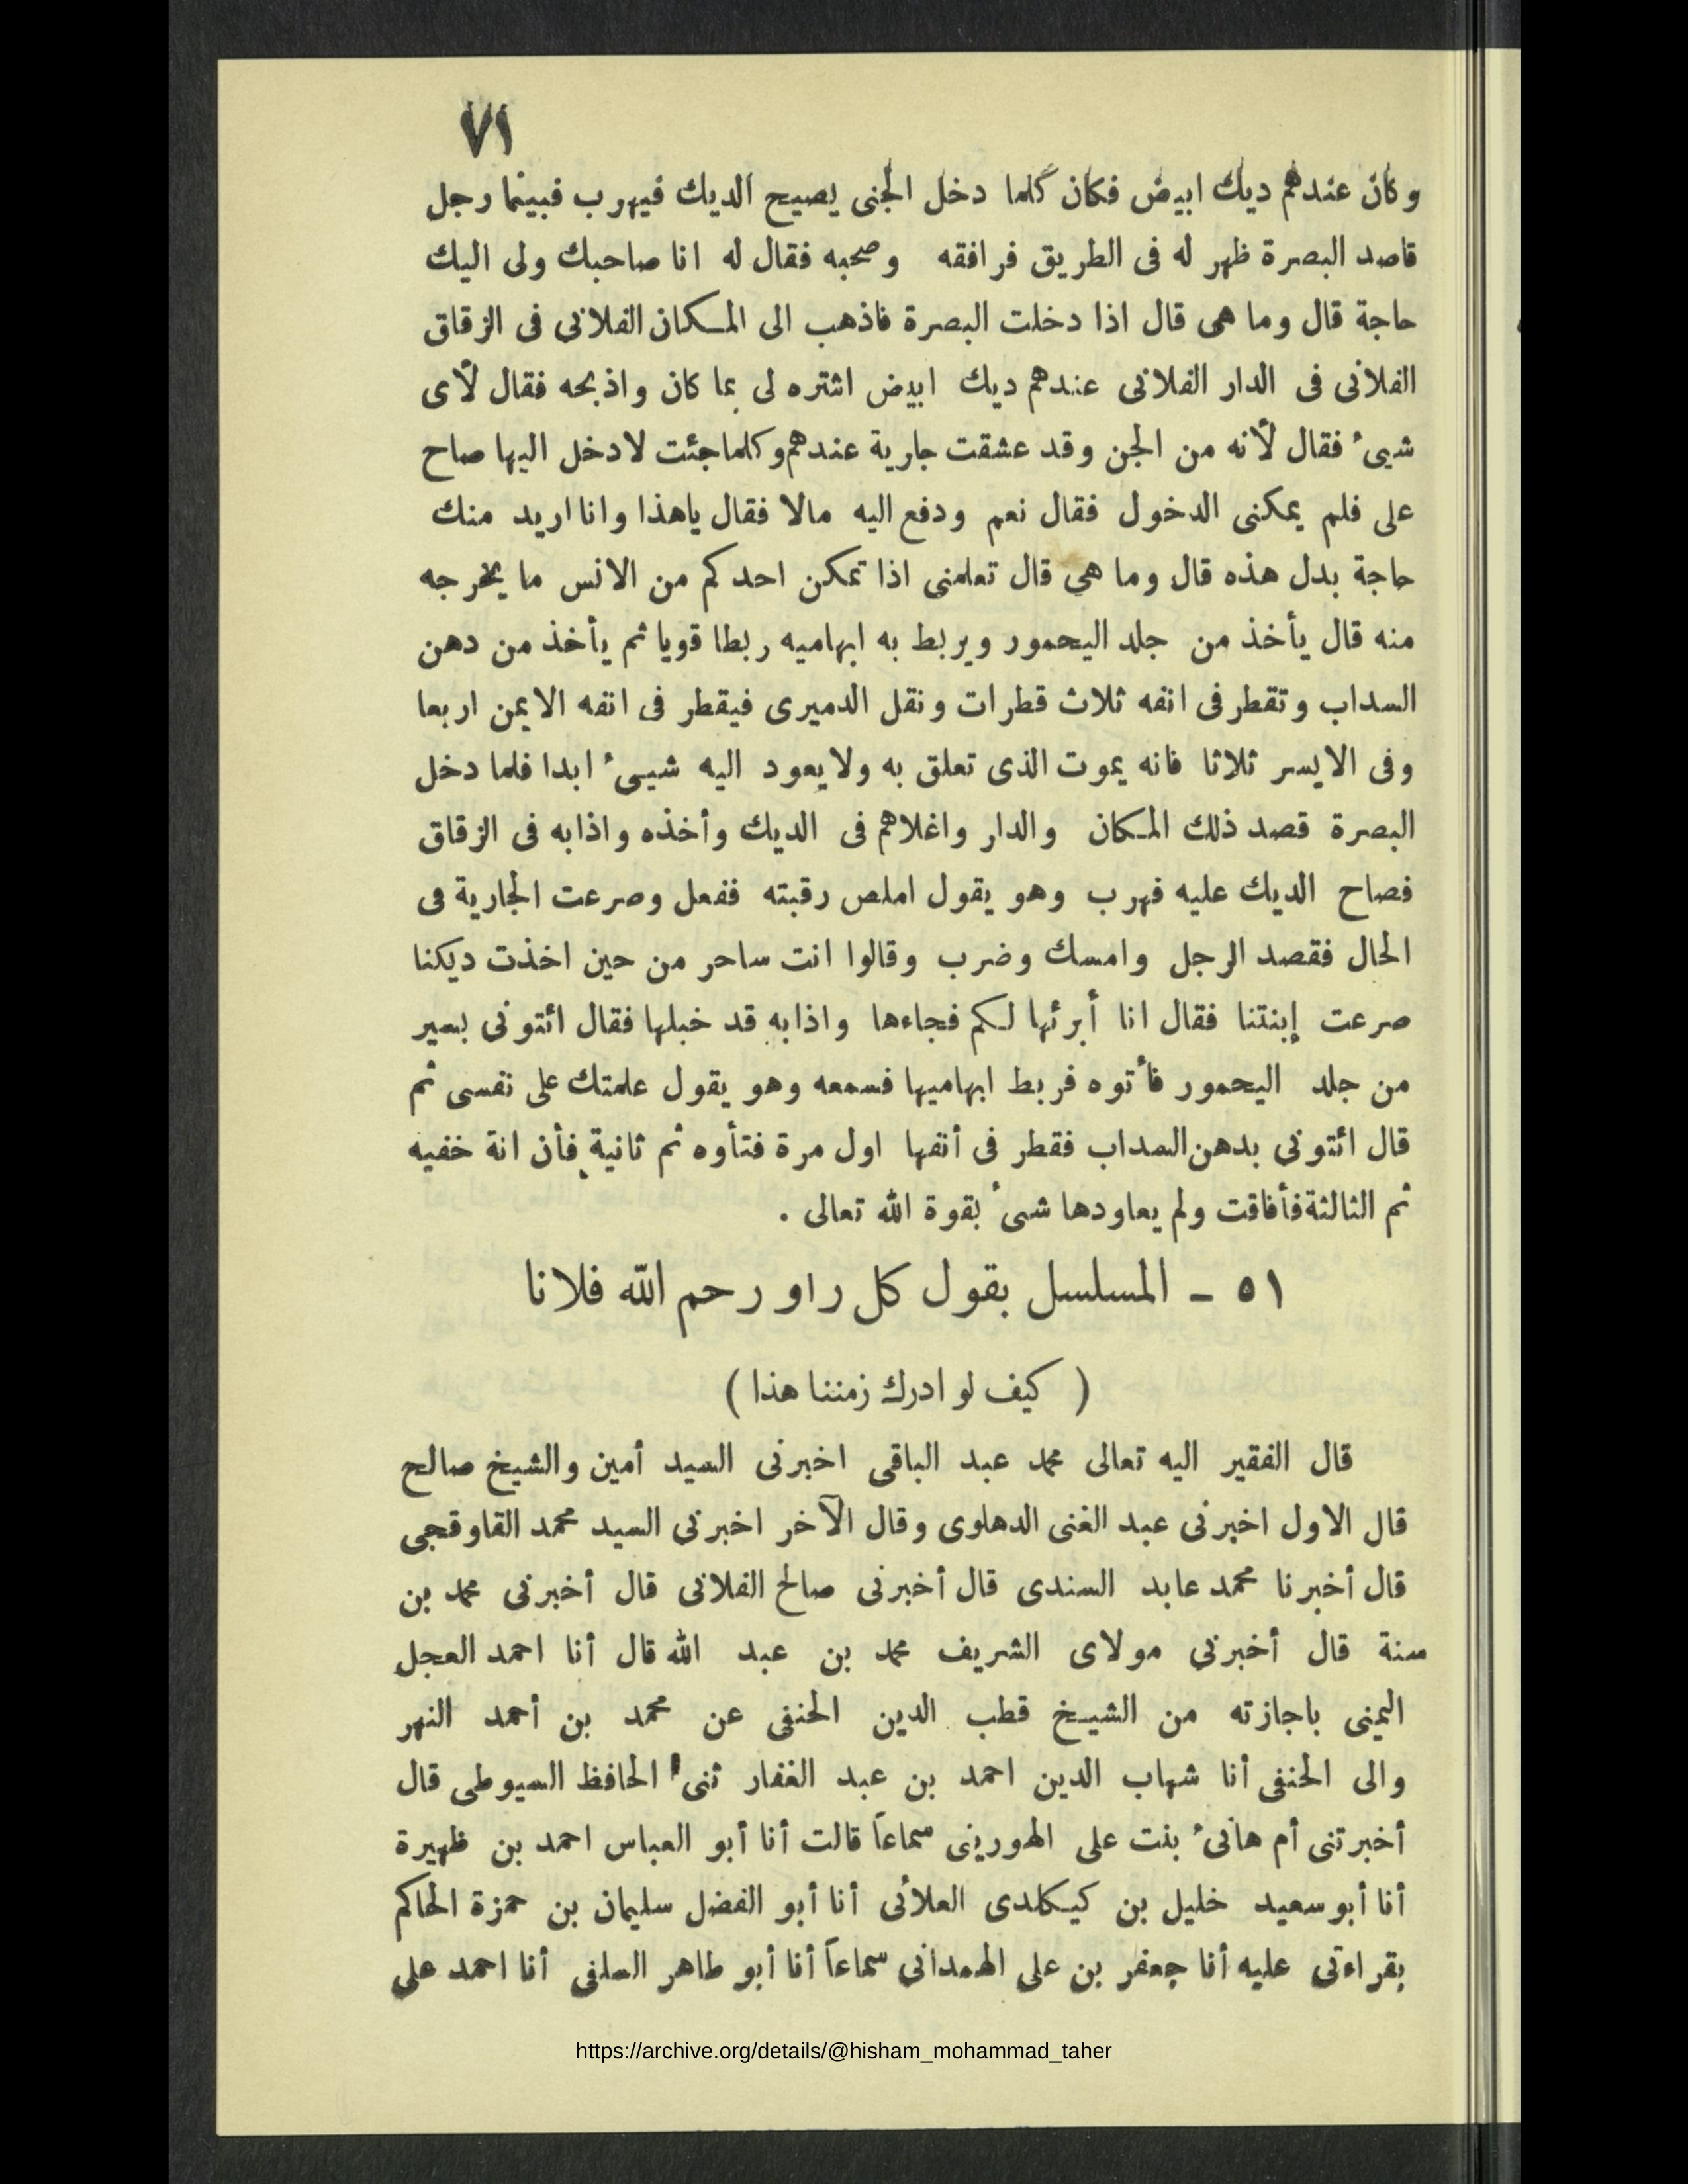 ٧١
وكان عندهم ديك ابيض فكان كلما دخل الجنى يصيح الديك فيهرب فبينما رجل
قاصد البصرة ظهر له فى الطريق فرافقه وصحبه فقال له انا صاحبك ولى اليك
حاجة قال وما هى قال اذا دخلت البصرة فاذهب الى المكان الفلانى فى الزقاق
الفلانى فى الدار الفلانى عندهم ديك ابيض اشتره لى بما كان واذبحه فقال لأى
شيىء فقال لأنه من الجن وقد عشقت جارية عندهم وكلما جئت لادخل اليها صاح
على فلم يمكنى الدخول فقال نعم ودفع اليه مالا فقال ياهذا وانا اريد منك
حاجة بدل هذه قال وما هي قال تعلمنى اذا تمكن احدكم من الانس ما يخرجه
منه قال يأخذ من جلد اليحمور ويربط به ابهاميه ربطا قويا ثم يأخذ من دهن
السداب وتقطر فى انفه ثلاث قطرات ونقل الدميرى فيقطر فى انفه الايمن اربعا
وفى الايسر ثلاثا فانه يموت الذى تعلق به ولا يعود اليه شيىء ابدا فلما دخل
البصرة قصد ذلك المكان والدار واغلاهم فى الديك وأخذه واذابه فى الزقاق
فصاح الديك عليه فهرب وهو يقول املص رقبته ففعل وصرعت الجارية فى
الحال فقصد الرجل وامسك وضرب وقالوا انت ساحر من حين اخذت ديكنا
صرعت إبنتنا فقال انا أبرئها لكم فجاءها واذابه قد خبلها فقال ائتونى بسير
من جلد اليحمور فأتوه فربط ابهاميها فسمعه وهو يقول علمتك على نفسى ثم
قال ائتونى بدهن السداب فقطر فى أنفها اول مرة فتأوه ثم ثانية فأن انة خفيه
ثم الثالثة فأفاقت ولم يعاودها شىء بقوة الله تعالى .
٥١ - المسلسل بقول كل راو رحم الله فلانا
( كيف لو ادرك زمننا هذا )
قال الفقير اليه تعالى محمد عبد الباقى اخبرنى السيد أمين والشيخ صالح
قال الاول اخبرنى عبد الغنى الدهلوى وقال الآخر اخبرنى السيد محمد القاوقجى
قال أخبرنا محمد عابد السندى قال أخبرنى صالح الفلانى قال أخبرنى محمد بن
سنة قال أخبرني مولاى الشريف محمد بن عبد الله قال أنا احمد العجل
اليمنى باجازته من الشيخ قطب الدين الحنفى عن محمد بن أحمد النهر
والى الحنفى أنا شهاب الدين احمد بن عبد الغفار ثنى الحافظ السيوطى قال
أخبرتنى أم هانىء بنت على الهورينى سماعاً قالت أنا أبو العباس احمد بن ظهيرة
أنا أبو سعيد خليل بن كيكلدى العلائى أنا أبو الفضل سليمان بن حمزة الحاكم
بقراءتى عليه أنا جعفر بن على الهمدانى سماعاً أنا أبو طاهر السلفى أنا احمد على
https://archive.org/details/@hisham_mohammad_taher